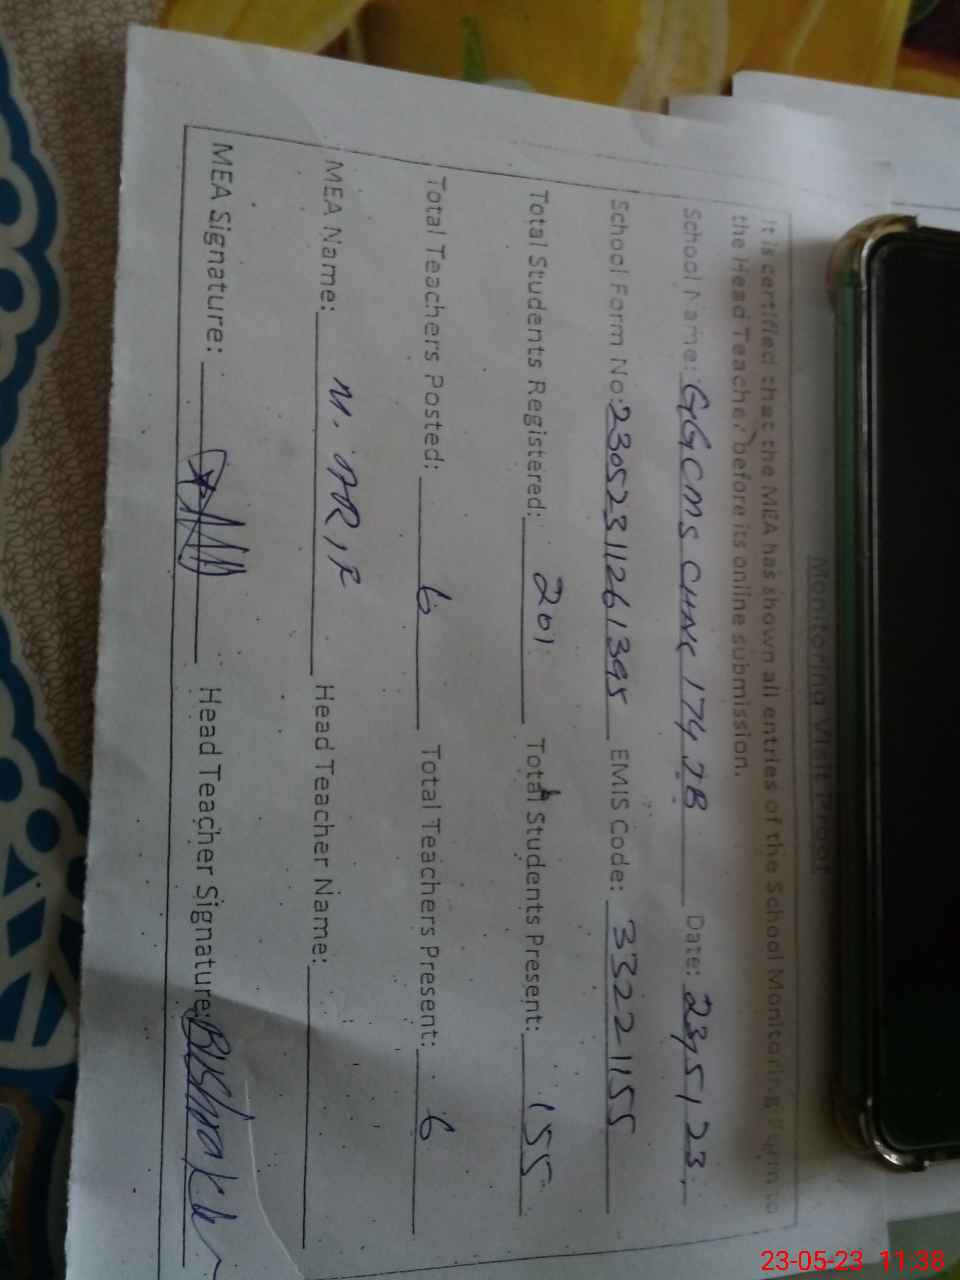 Monitoring Visit Proof
It is certified that the MEA has shown all entries of the School Monitoring Form to
the Head Teacher before its online submission.
School Name: GGCMS CHAK 174 JB Date: 23/5/23
School Form No: 23052311261395 EMIS Code: 33221155
Total Students Registered: 201 Total Students Present: 155
Total Teachers Posted: 6 Total Teachers Present: 6
MEA Name: M. ARIF Head Teacher Name:
MEA Signature: Head Teacher Signature: Bushra
23-05-23 11:38